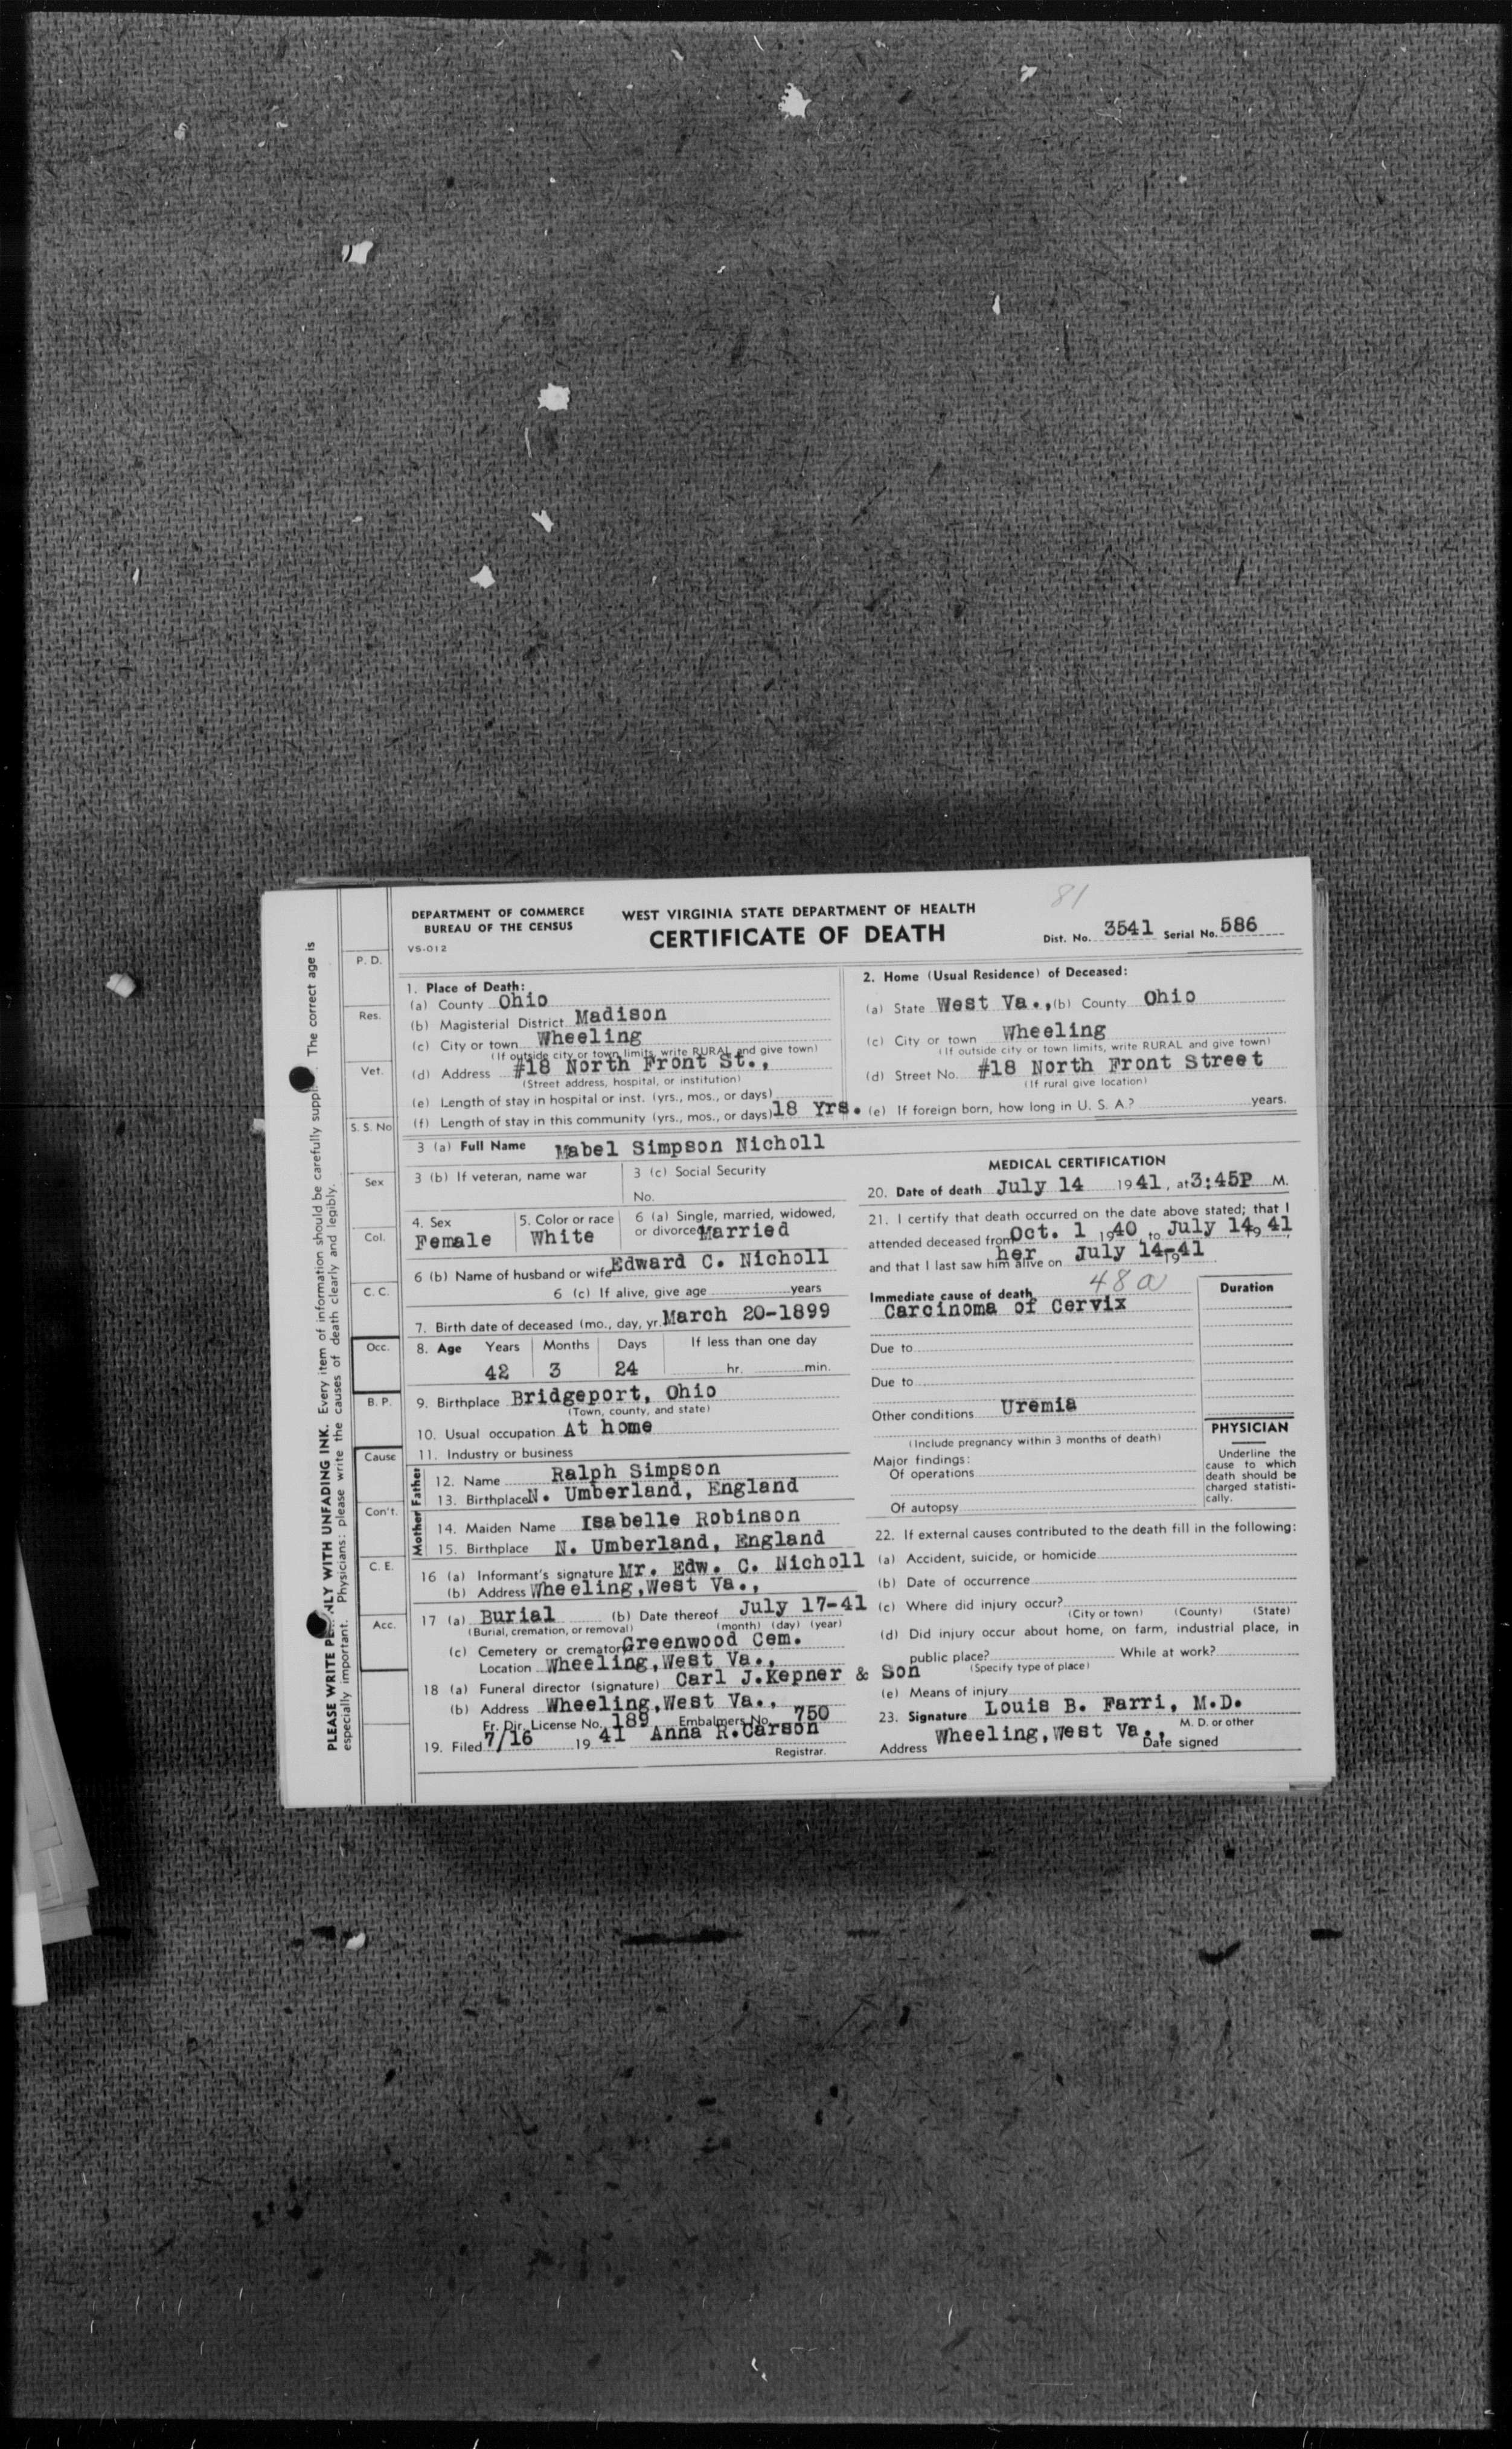 PLEASE WRITE PL NLY WITH UNFADING INK. Every item of information should be carefully suppl The correct age is
especially important. Physicians: please write the causes of death clearly and legibly.
P. D.
Res.
Vet.
S. S. No
Sex
Col.
C. C.
Occ.
B. P.
Cause
Con't.
C. E.
Acc.
81
DEPARTMENT OF COMMERCE
BUREAU OF THE CENSUS
VS-012
WEST VIRGINIA STATE DEPARTMENT OF HEALTH
CERTIFICATE OF DEATH
Dist. No. 3541 Serial No. 586
1. Place of Death:
(a) County Ohio
(b) Magisterial District Madison
(c) City or town Wheeling
(If outside city or town limits, write RURAL and give town)
(d) Address #18 North Front St.,
(Street address, hospital, or institution)
(e) Length of stay in hospital or inst. (yrs., mos., or days)
(f) Length of stay in this community (yrs., mos., or days) 18 Yrs.
2. Home (Usual Residence) of Deceased:
(a) State West Va., (b) County Ohio
(c) City or town Wheeling
(If outside city or town limits, write RURAL and give town)
(d) Street No. #18 North Front Street
(If rural give location)
(e) If foreign born, how long in U. S. A.? years.
3 (a) Full Name Mabel Simpson Nicholl
3 (b) If veteran, name war
3 (c) Social Security
No.
4. Sex
Female
5. Color or race
White
6 (a) Single, married, widowed,
or divorced Married
6 (b) Name of husband or wife Edward C. Nicholl
6 (c) If alive, give age years
7. Birth date of deceased (mo., day, yr. March 20-1899
8. Age Years Months Days If less than one day
42 3 24 hr. min.
9. Birthplace Bridgeport, Ohio
(Town, county, and state)
10. Usual occupation At home
11. Industry or business
Father
12. Name Ralph Simpson
13. Birthplace N. Umberland, England
Mother
14. Maiden Name Isabelle Robinson
15. Birthplace N. Umberland, England
16 (a) Informant's signature Mr. Edw. C. Nicholl
(b) Address Wheeling,West Va.,
17 (a) Burial (b) Date thereof July 17-41
(Burial, cremation, or removal) (month) (day) (year)
(c) Cemetery or crematory Greenwood Cem.
Location Wheeling,West Va.,
18 (a) Funeral director (signature) Carl J.Kepner & Son
(b) Address Wheeling,West Va.,
Fr. Dir. License No. 189 Embalmers No. 750
19. Filed 7/16 19 41 Anna R.Carson
Registrar.
MEDICAL CERTIFICATION
20. Date of death July 14 1941, at 3:45P M.
21. I certify that death occurred on the date above stated; that I
attended deceased from Oct. 1 1940, to July 14, 1941
and that I last saw him her alive on July 14-1941
48a
Immediate cause of death
Carcinoma of Cervix
Duration
Due to
Due to
Other conditions Uremia
(Include pregnancy within 3 months of death)
Major findings:
Of operations
Of autopsy
PHYSICIAN
Underline the
cause to which
death should be
charged statisti-
cally.
22. If external causes contributed to the death fill in the following:
(a) Accident, suicide, or homicide
(b) Date of occurrence
(c) Where did injury occur?
(City or town) (County) (State)
(d) Did injury occur about home, on farm, industrial place, in
public place? While at work?
(Specify type of place)
(e) Means of injury
23. Signature Louis B. Farri, M.D.
M. D. or other
Address Wheeling,West Va., Date signed